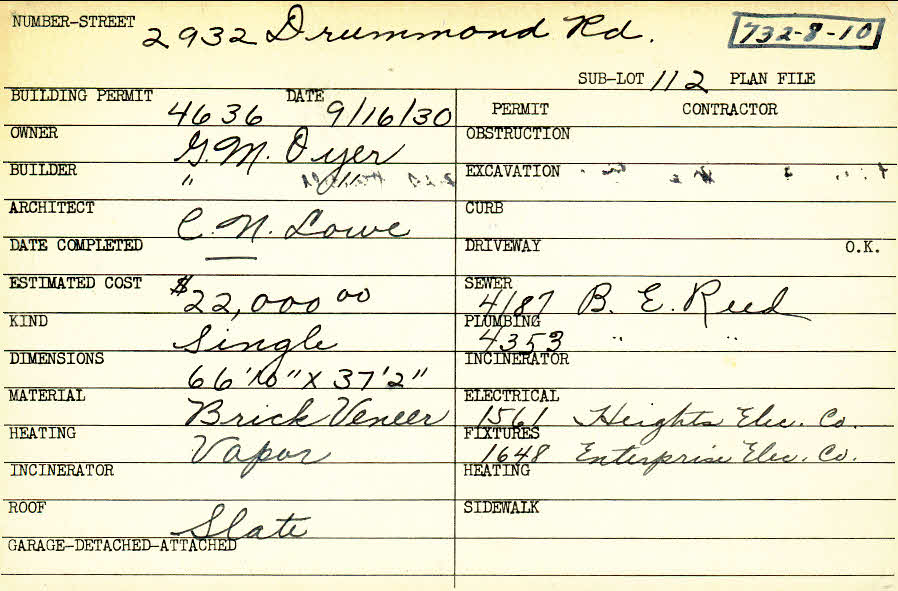 NUMBER-STREET 2932 Drummond Rd. 732-8-10
SUB-LOT 112 PLAN FILE
BUILDING PERMIT 4636 DATE 9/16/30 PERMIT CONTRACTOR
OWNER G.M. Dyer OBSTRUCTION
BUILDER " " EXCAVATION
ARCHITECT C.N. Lowe CURB
DATE COMPLETED — DRIVEWAY O.K.
ESTIMATED COST $22,000 00 SEWER 4187 B. E. Reed
KIND Single PLUMBING 4353 " "
DIMENSIONS 66'10" X 37'2" INCINERATOR
MATERIAL Brick Veneer ELECTRICAL 1561 Heights Elec. Co.
HEATING Vapor FIXTURES 1648 Enterprise Elec. Co.
INCINERATOR HEATING
ROOF Slate SIDEWALK
GARAGE-DETACHED-ATTACHED